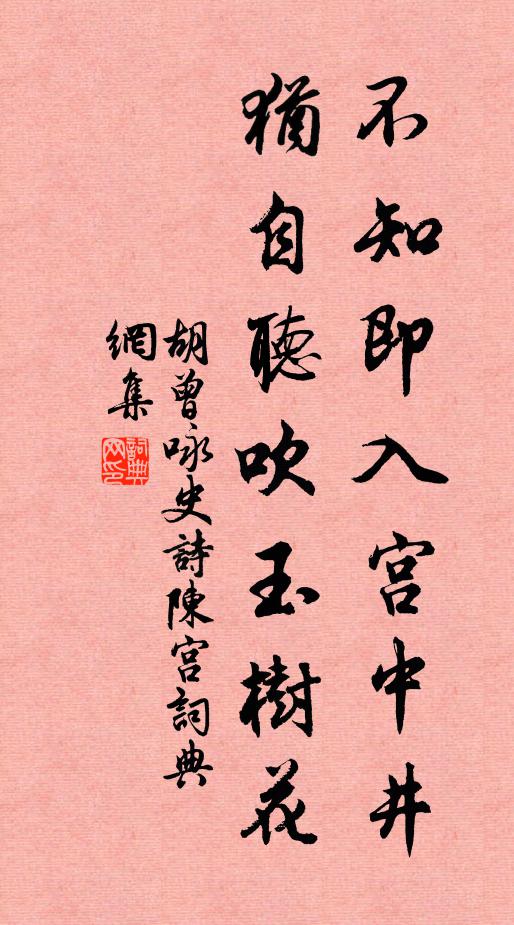 不知即入宫中井
猶自聽吹玉樹花
胡曾咏史詩陳宫詞典
網集
詞典網印